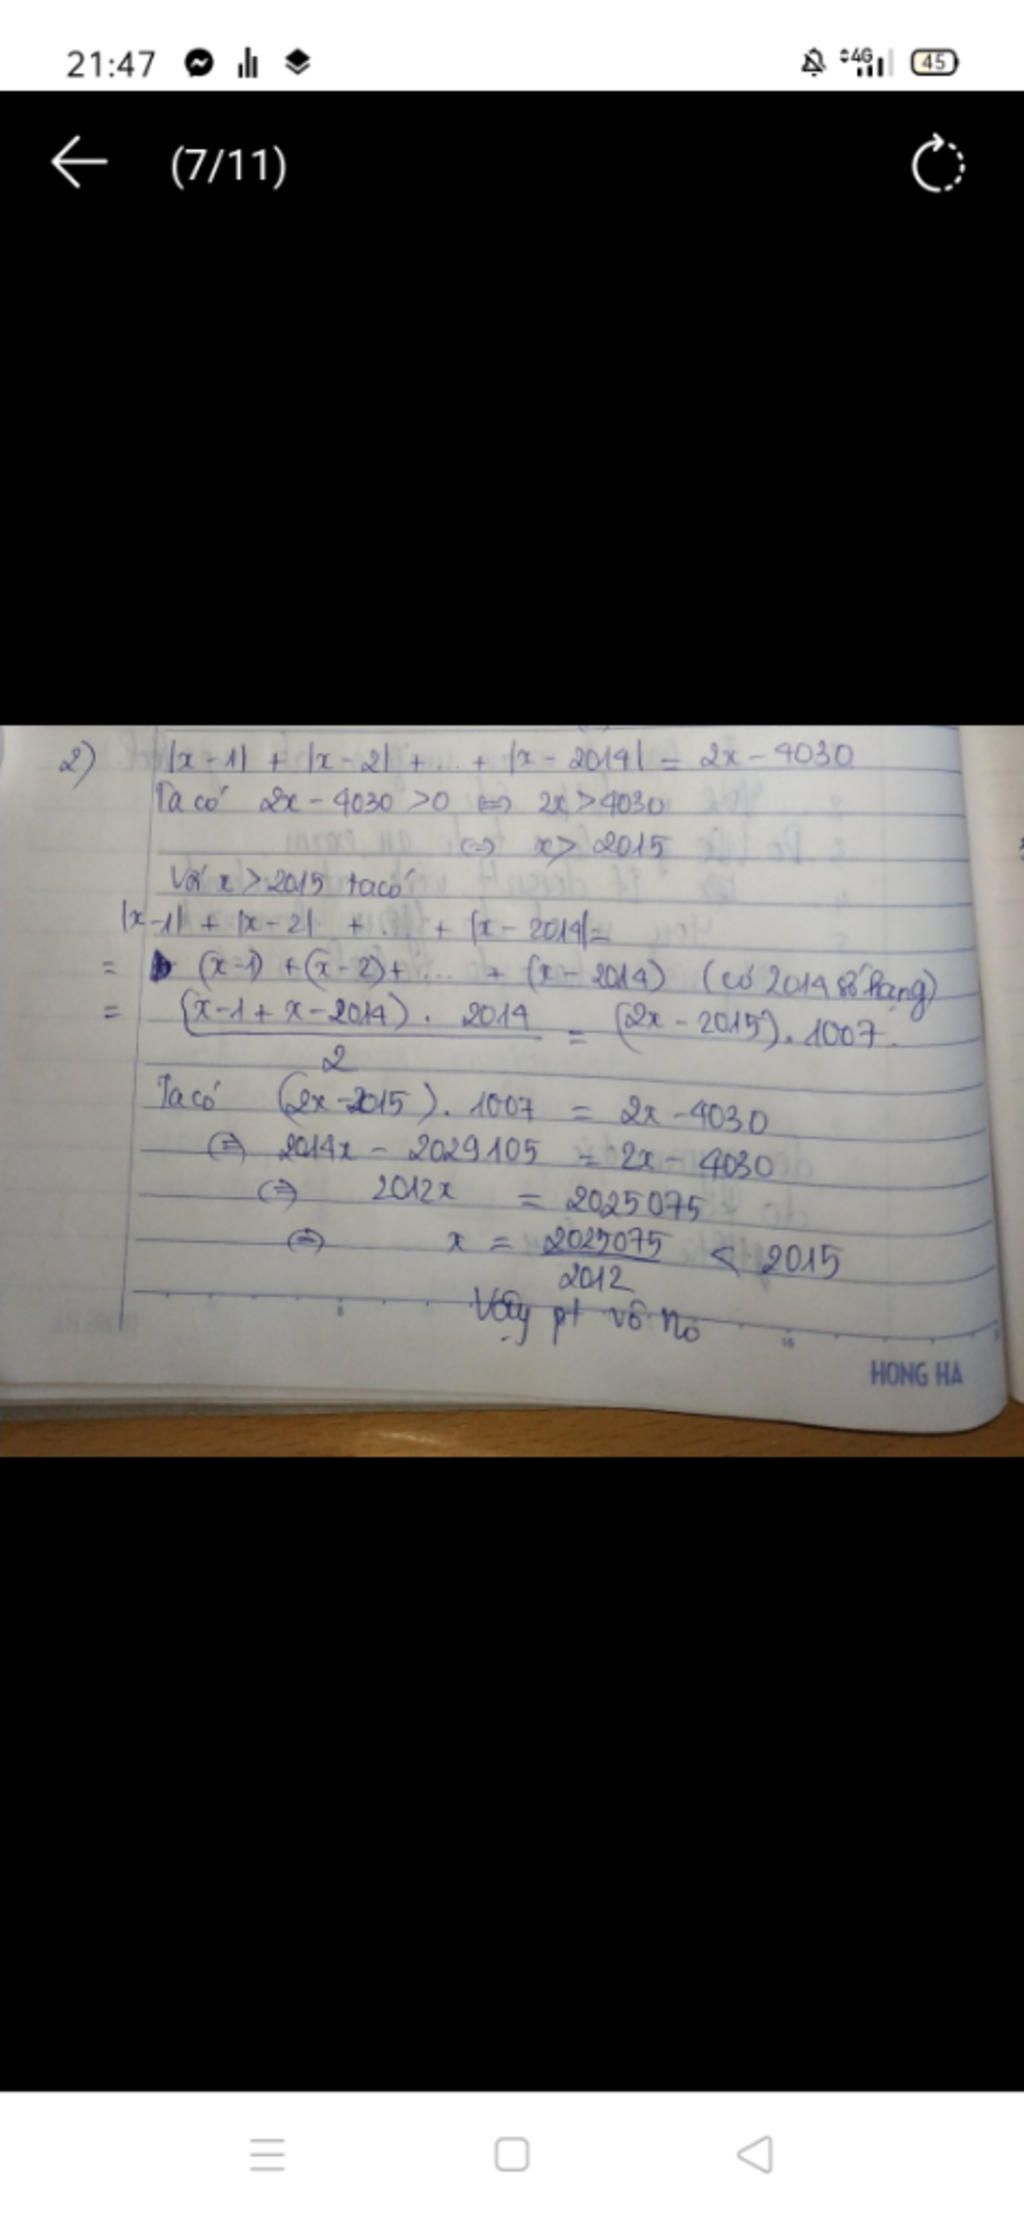 21:47 4G 45
(7/11)
2) |x-1| + |x-2| + ... + |x-2014| = 2x-4030
Ta có 2x-4030 >0 ⇔ 2x>4030
⇔ x> 2015
Với x>2015 ta có
|x-1| + |x-2| + ... + |x-2014|=
= (x-1) +(x-2)+ ... + (x-2014) (có 2014 số hạng)
= (x-1+x-2014). 2014 / 2 = (2x-2015). 1007.
Ta có (2x-2015). 1007 = 2x-4030
⇔ 2014x - 2029105 = 2x-4030
⇔ 2012x = 2025075
⇔ x = 2025075 / 2012 < 2015
Vậy pt vô no
HONG HA